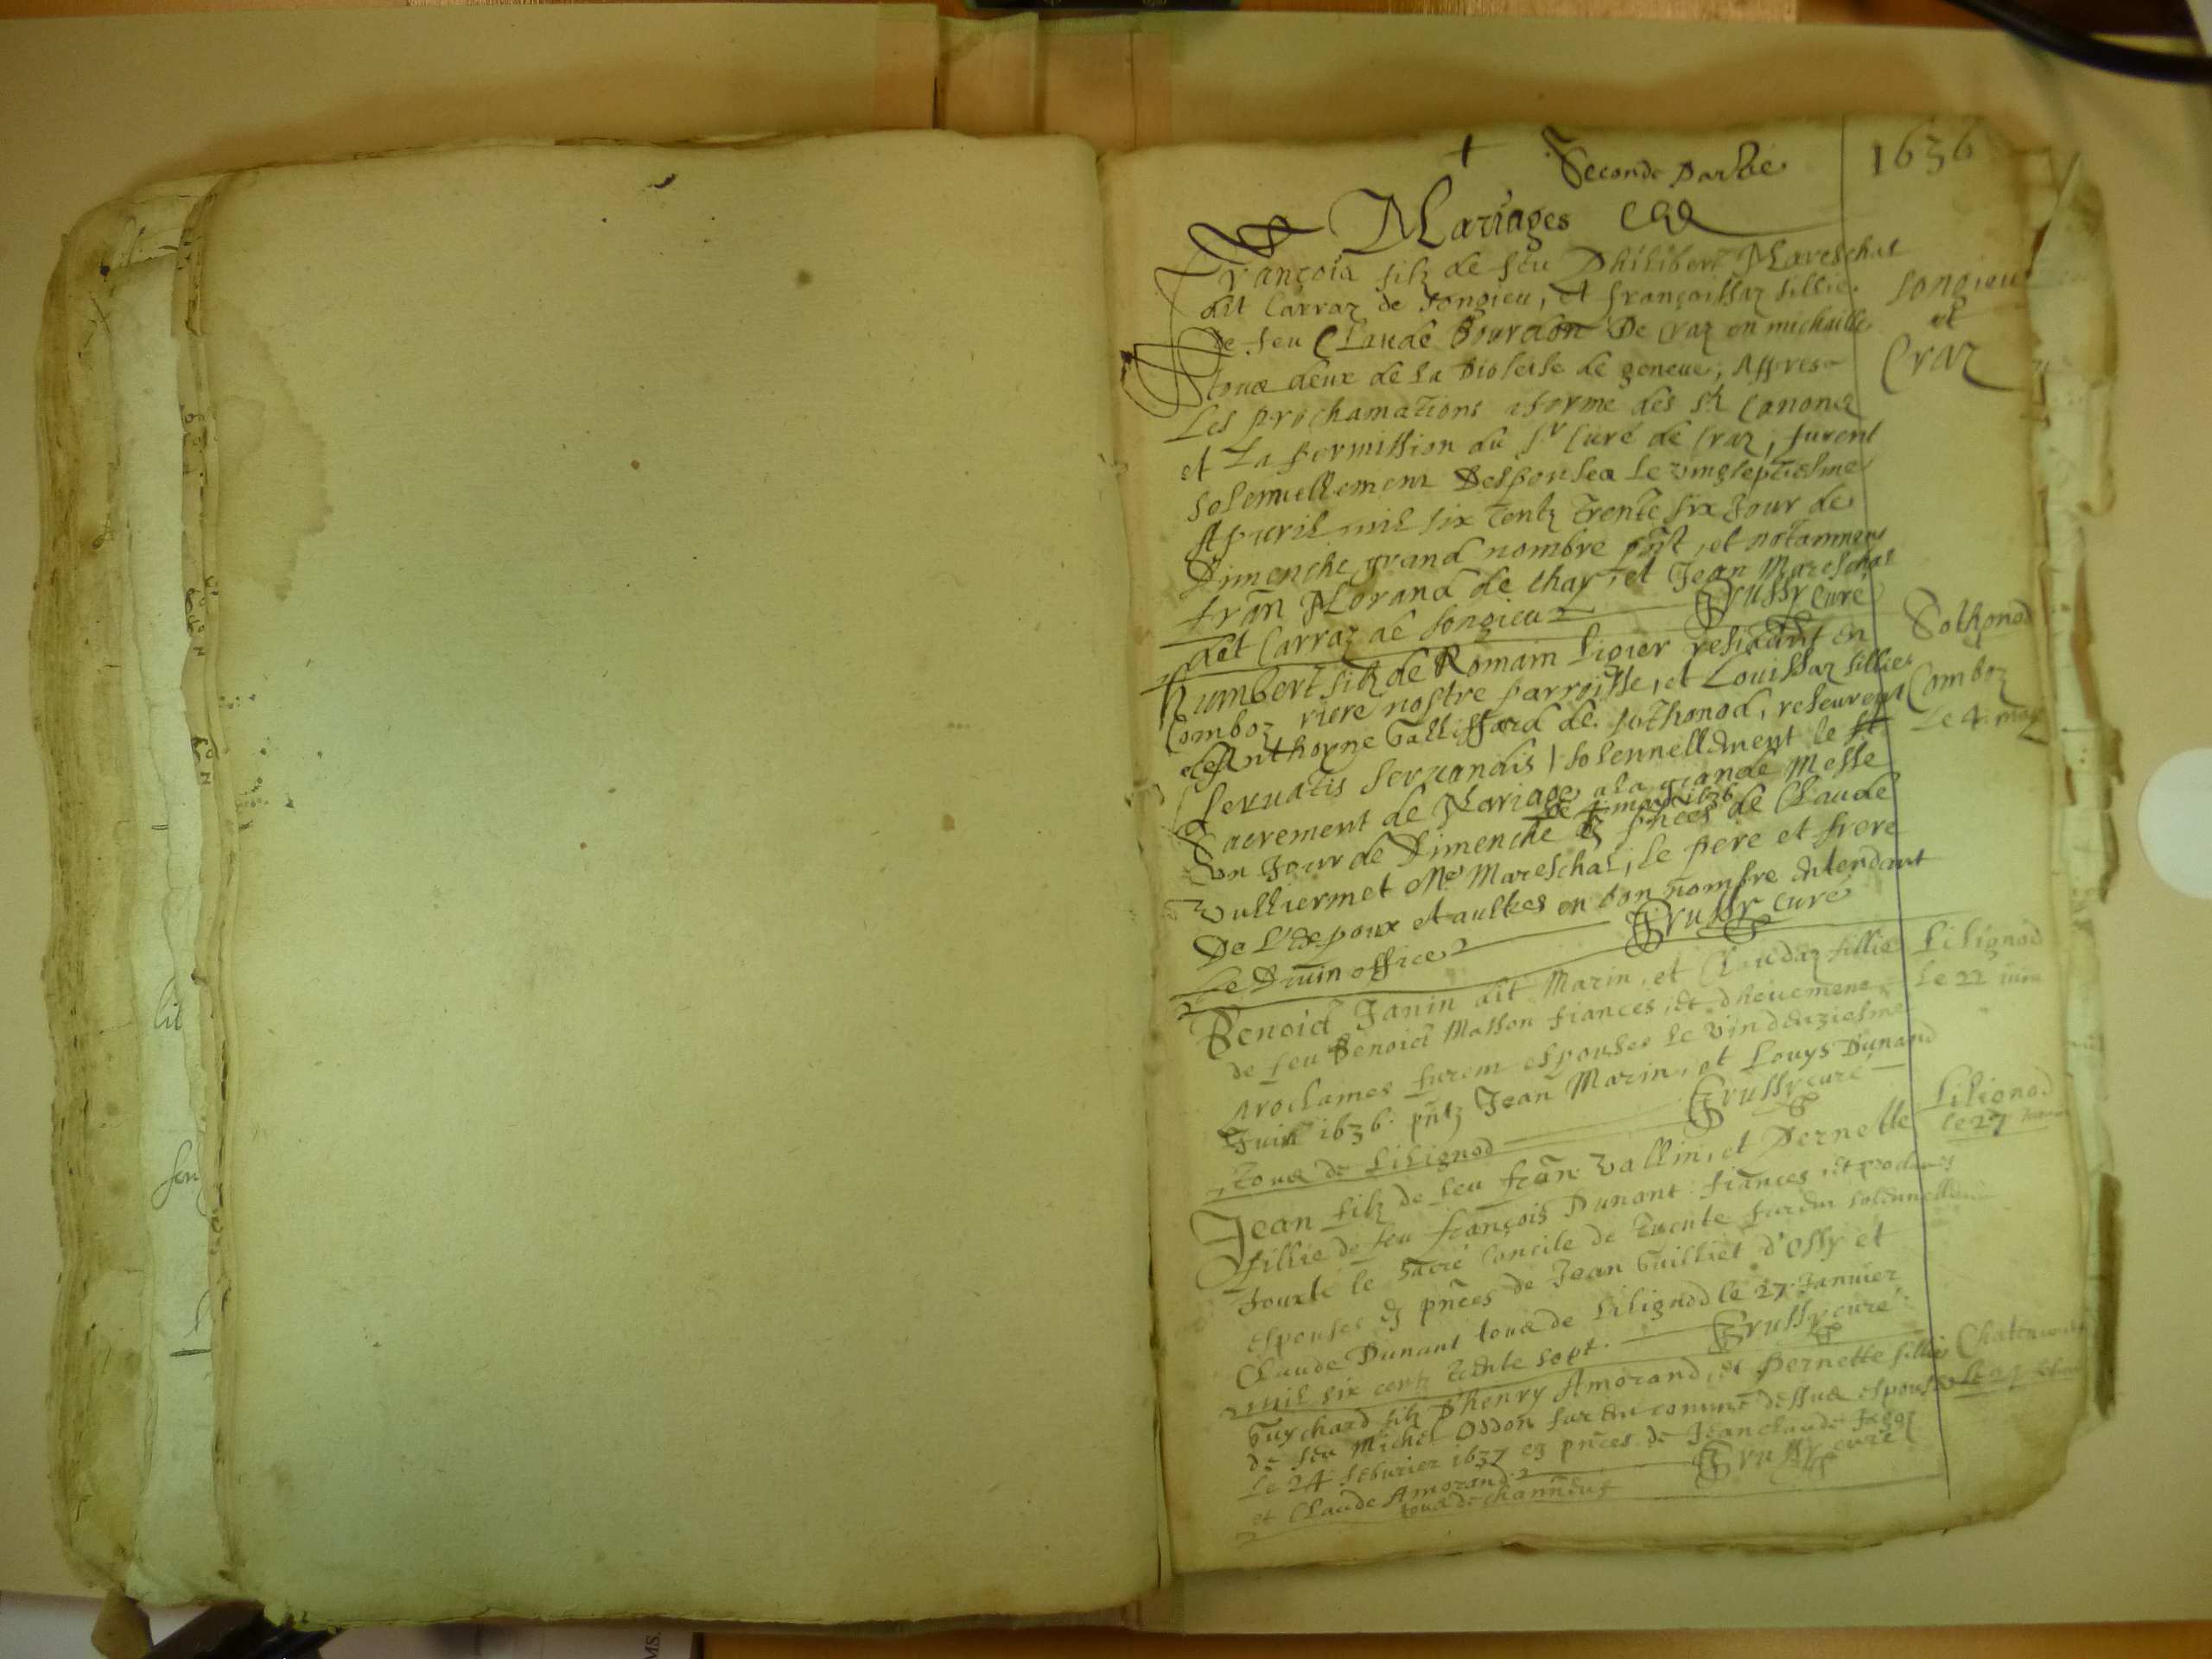 +
Seconde Partie
1636
Mariages
François filz de feu Philibert Mareschal
dit Carraz de Songieu, et françoissaz fillie
Songieu
et
Craz
de feu Claude Bourdon De Craz en michaille
tous deux de la Diosesse de geneue, Appres
Les prochamations a forme des Sts Canons
et La permission du Sr Curé de Craz, furent
solemnellement Desponsea le vingseptiesme
Apuril mil six centz trente six Jour de
Dimenche grand nombre pnt, et notamment
fran Morand de char, et Jean Mareschal
dit Carraz de Songieu
Grussy Curé
Humbert filz de Romain Ligier residant en
Sothonod
Comboz riere nostre parroisse, et Louissaz fillie
Comboz
de Anthoyne Galliffard de Sothonod, reseurent
le 4 may
(seruatis seruandis) solennellement le St
Sacrement de Mariage, a la grande Messe
le 4 may 1636
vn Jour de Dimenche es pnces de Claude
Vulliermet Me Mareschal, le pere et frere
De L'espoux et aultres en bon nombre entendant
Le Diuin office
Grussy curé
Benoict Janin dit Marin, et Claudaz fillie
Lilignod
de feu Benoict Masson fiances, et dheuement
le 22 iuin
proclames furent espouses le vindeuziesme
Juin 1636. pntz Jean Marin, et Louys Dunand
tous de Lilignod
Grussy curé
Jean filz de feu fran Vallin, et Pernette
Lilignod
le 27
fillie de feu françois Dunant fiances, et proclames
Jouxte le sacré Concile de Trente furent solennellement
espouses es pnces de Jean Guilliet d'Ossy et
Claude Dunant tous de Lilignod le 27 Januier
mil six centz trente sept.
Grussy curé
Guychard filz d'henry Amorand, et Pernette fillie
de feu Michel Oddon furent comme dessus espouses
le 24
le 24 feburier 1637 es pnces de Jean claude
et Claude Amorand
tous de
Grussy curé